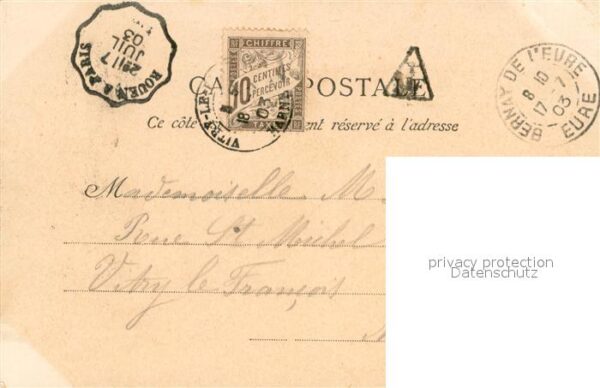 ROUEN À PARIS
2E 17
JUIL
03
CHIFFRE
10
CENTIMES
À
PERCEVOIR
TAXE
VITRY-LE-
MARNE
18
BERNAY DE L'EURE
8 10
17 -7
03
EURE
CA POSTALE
Ce côte ent réservé à l'adresse
Mademoiselle M.
Rue St Michel
Vitry le François
privacy protection
Datenschutz